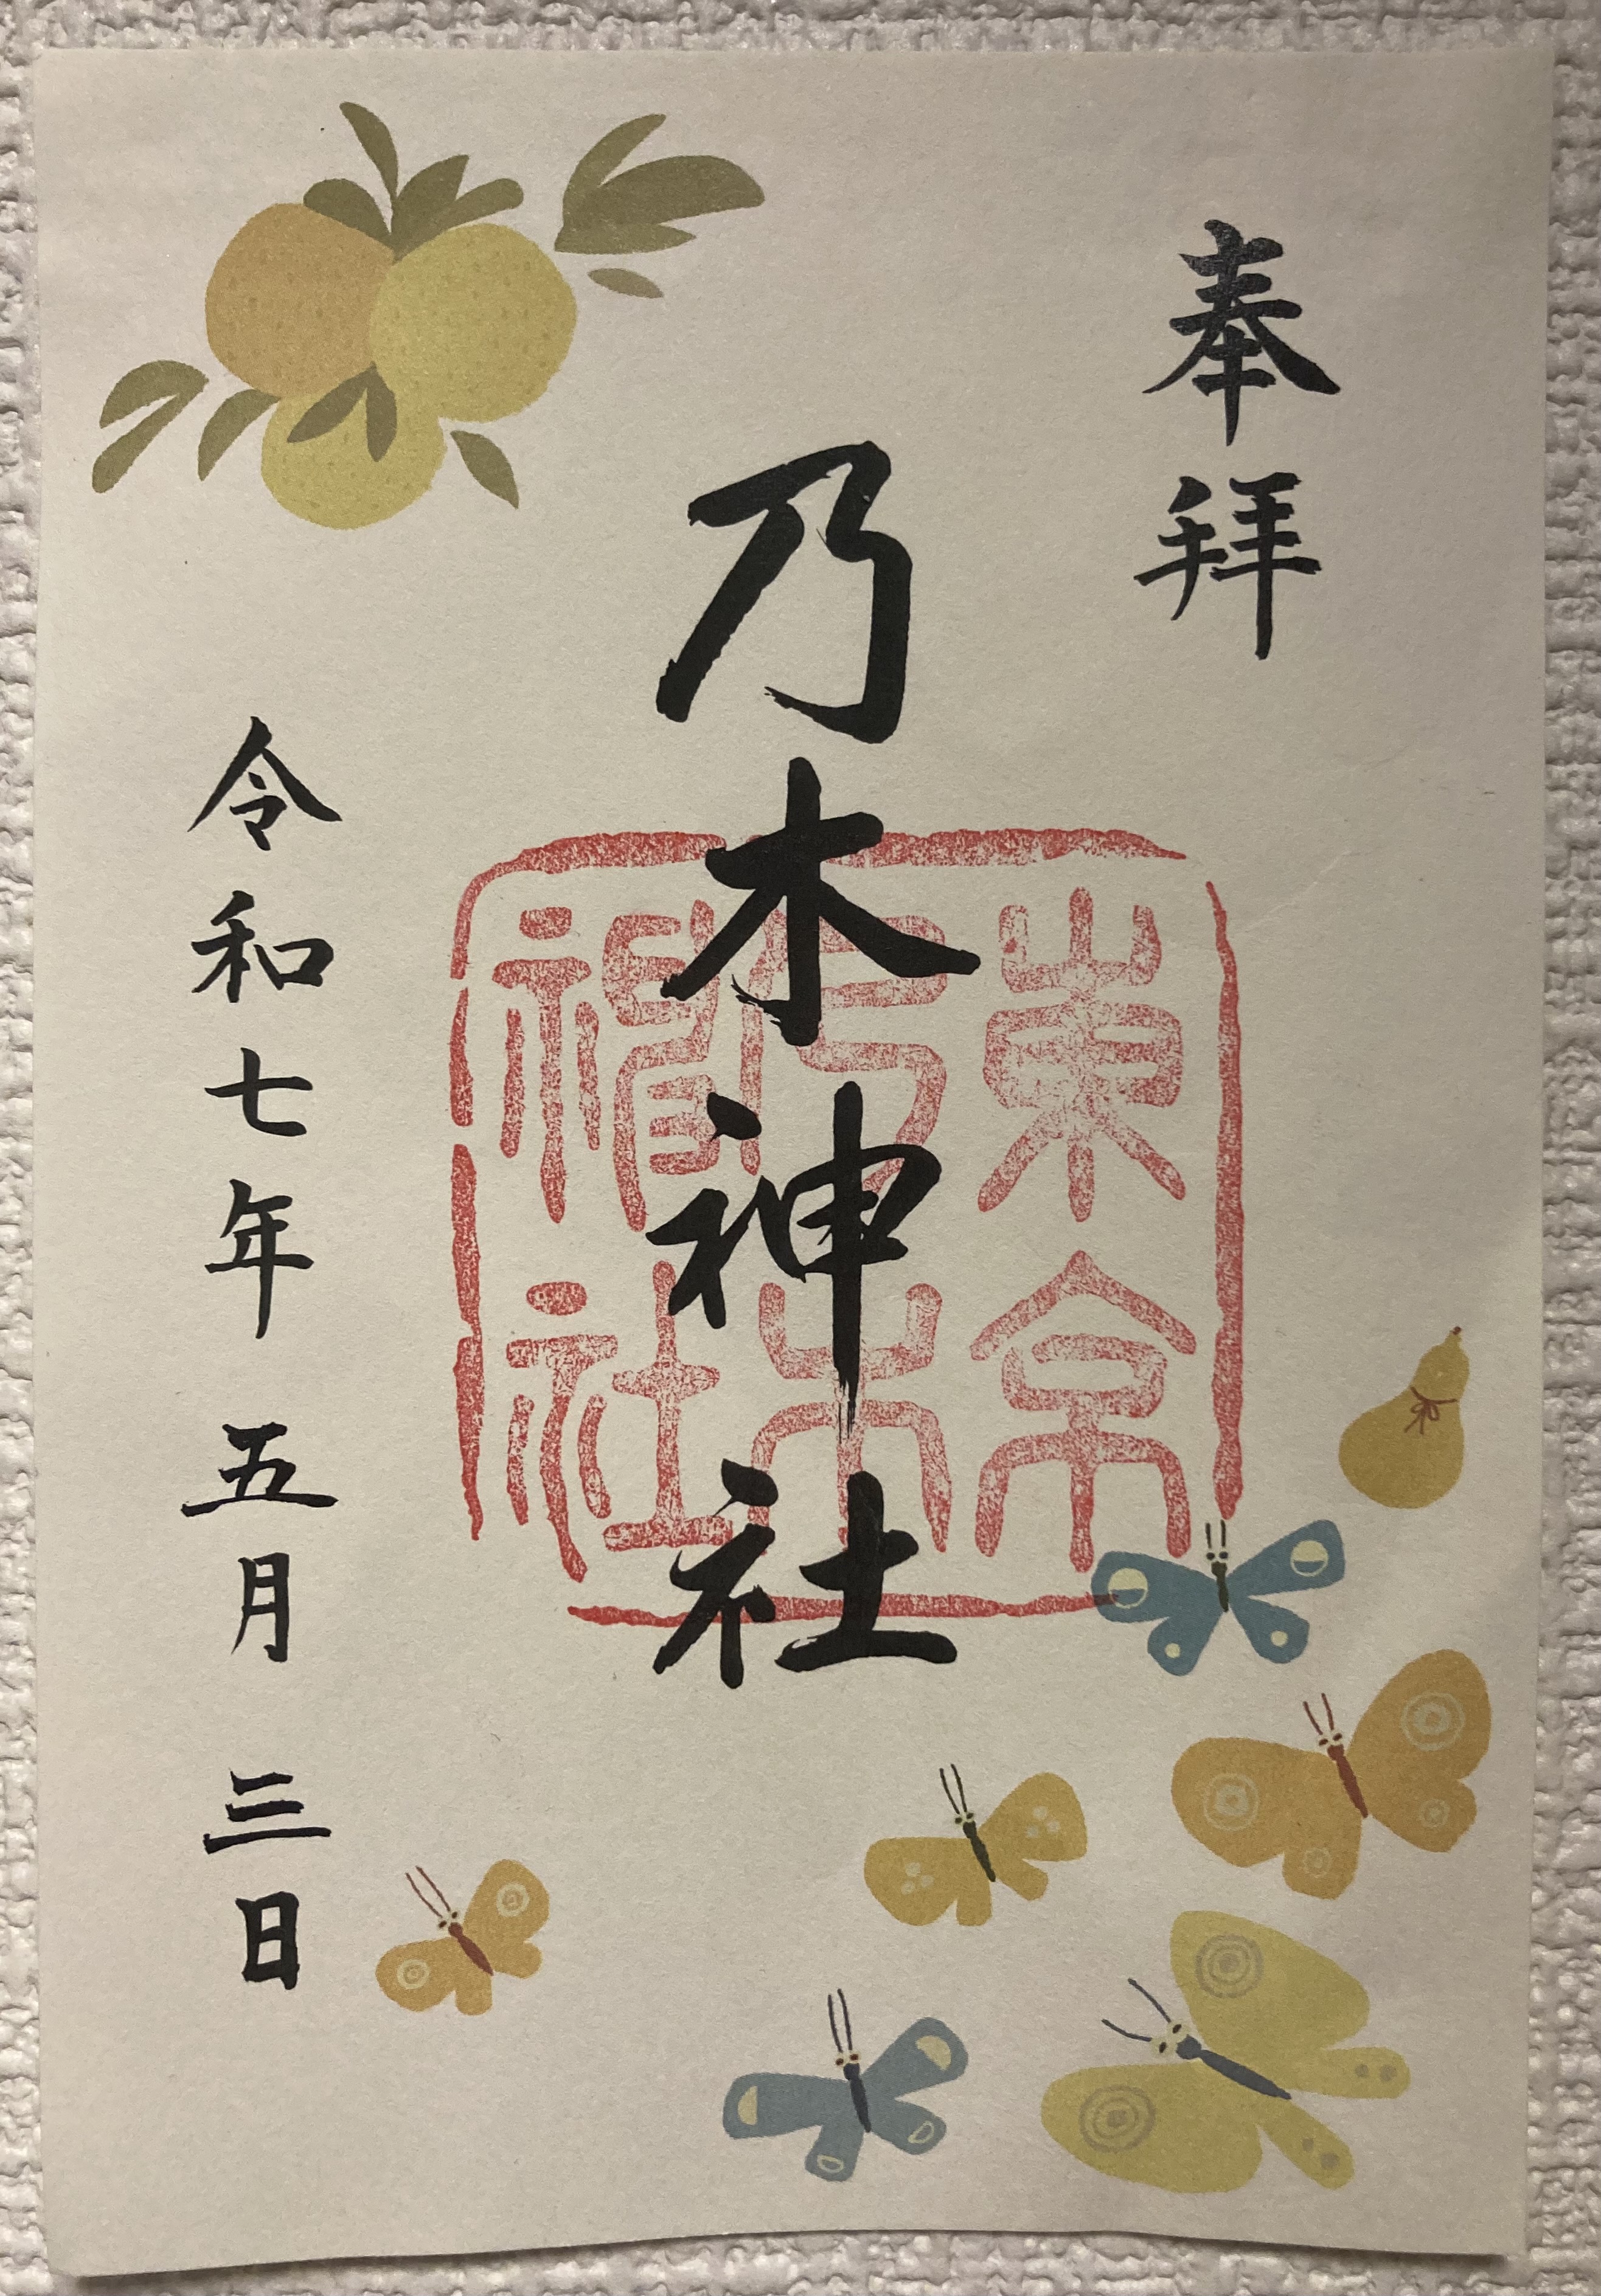 奉拝
乃木神社
東京乃木神社
令和七年 五月 三日